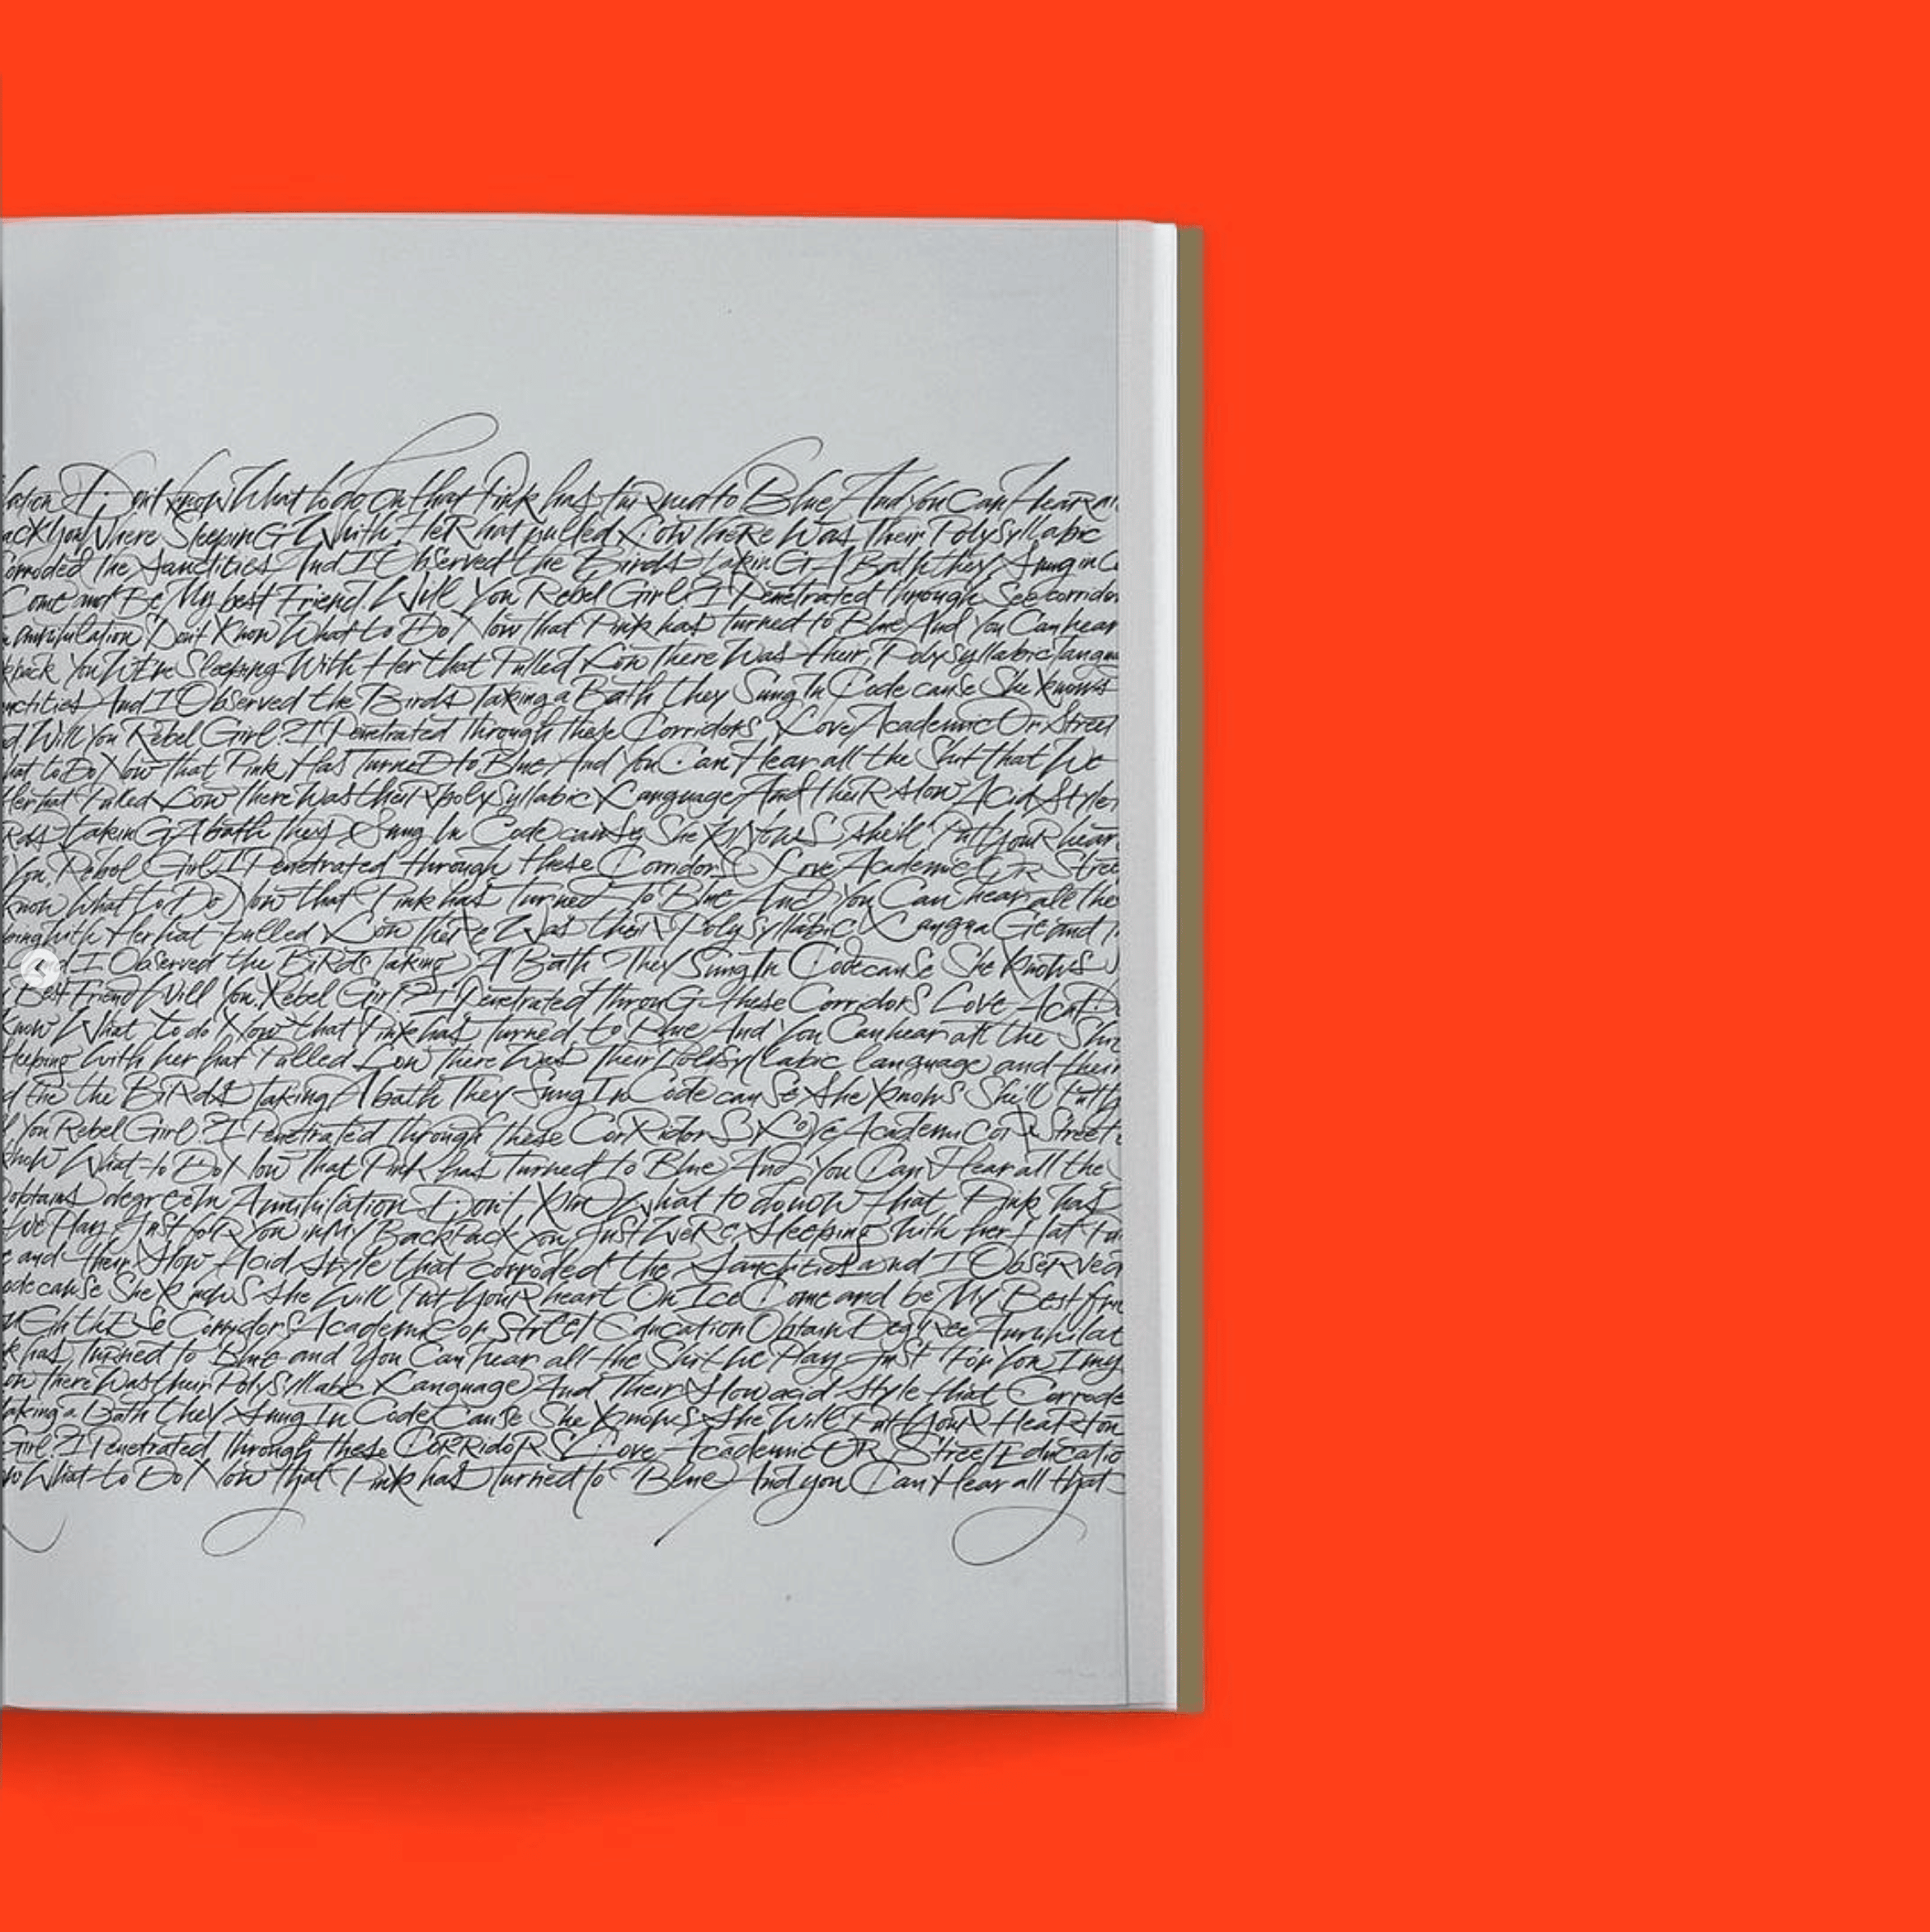 lation Don't know What to do On that Pink has tuRned to Blue And you Can Hear a
ack you Where SleepinG With HeR hat pulled Low TheRe Was Their Polysyllabic
orroded the Sanctities And I Observed the Birds takinG A Bath they Sung in C
Come and Be My best Friend. Will You Rebel Girl? I Penetrated through See corridor
annihilation Don't Know What to Do Now that Pink has turned to Blue And You Can hear
kpack You WEre Sleeping With Her that Pulled Low there Was their Polysyllabic langua
nctities And I Observed the Birds Taking a Bath they Sung In Code cause She knows
d Will You Rebel Girl? I Penetrated through these Corridors, Love Academic Or Street
hat to Do Now That Pink Has TurneD to Blue And You Can Hear all the Shit that We
Her hat Pulled Low There Was theiR polysyllabic Language And theiR slow ACid Style
Rds takinG A bath they Sung In Code cause She KNowS she'll Put youR hear
You, Rebel Girl I Penetrated through these Corridors Love Academic OR Stree
know What to Do Now that Pink has turned To Blue And You Can hear all the
eping with Her hat pulled Low theRe Was theiR Polysyllabic LanguaGe and
and I Observed the BiRds Taking A Bath They Sung In Code cause She KnowS
Best Friend Will You. Rebel Girl? I Penetrated ThrouG these CorridorS Love
know What to do Now that Pink has Turned to Blue And You Can hear all the Shit
sleeping With her hat Pulled Low There Was Their Polysyllabic language and their
d the the BiRds taking A bath They Sung In Code cauSe she knows She'll Putty
You Rebel Girl? I Penetrated through these CorRidorS Love Academic or Street
know What to Do Now That Pink has Turned to Blue And You Can Hear all the
obtains degree In Annihilation Don't Know What to do now that Pink has
We Play Just foR You in My BackPack you Just WeRe Sleeping With her Hat Pu
e and their Slow Acid Style that corroded the Sanctities and I ObseRved
ode cause She knowS she Will Put YouR heart On Ice Come and be My Best frie
uGh thESe Corridors Academic or StrEEt Education Obtain DegRee Annihilat
k has Turned to Blue and You Can hear all the Shit We Play Just For You I my
ow There Was their Polysyllabic Language And Their Slow acid Style that Corrode
taking a Bath they Sung In Code Cause She Knows She Will Put YouR HeaRt on
Girl? I Penetrated Through these CoRRidoRS Love, Academic OR Street Educatio
w What to Do Now that Pink has turned to Blue And you Can Hear all that